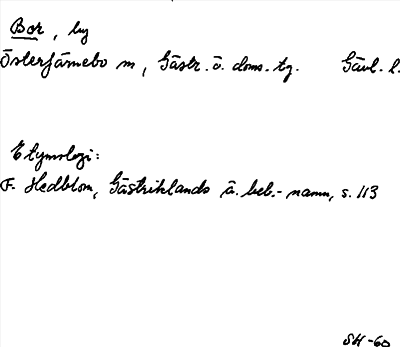 Bor, by
Österfärnebo sn, Gästr. ö. doms. tg. Gävl. l.
Etymologi:
F. Hedblom, Gästriklands ä. beb.-namn, s. 113
SH -60